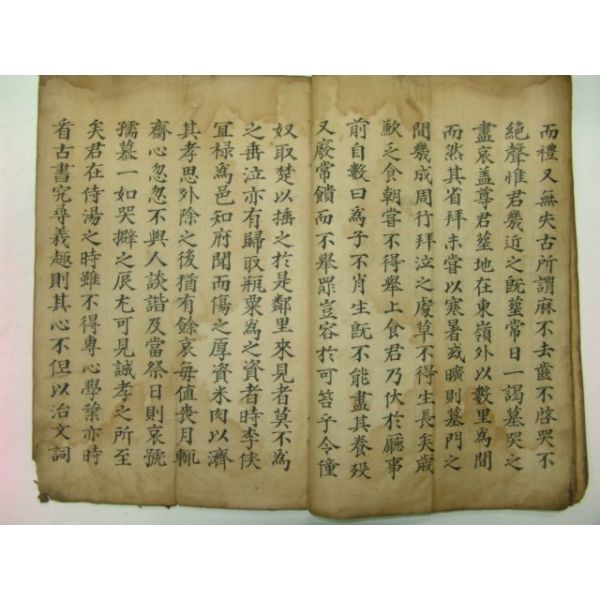 而禮又無失古所謂麻不去齒不啓哭不
絶聲惟君幾近之旣葬常日一謁墓哭之
盡哀盖尊君葬地在東嶺外以數里爲間
而然其省拜未嘗以寒暑或曠則墓門之
間幾成周行拜泣之處草不得生長矣歲
歉乏食朝嘗不得擧上食君乃伏於廳事
前自數曰爲子不肖生旣不能盡其養歿
又廢常饋而不擧罪豈容於可笞乎令僮
奴取楚以撻之於是鄰里來見者莫不爲
之垂泣亦有歸取瓶粟爲之資者時李侯
宜祿爲邑知府聞而傷之厚資米肉以濟
其孝思外除之後猶有餘哀每值喪月輒
齋心忽忽不與人談諧及當祭日則哀號
孺慕一如哭擗之辰尤可見誠孝之所至
矣君在侍湯之時雖不得專心學業亦時
看古書究尋義趣則其心不但以治文詞